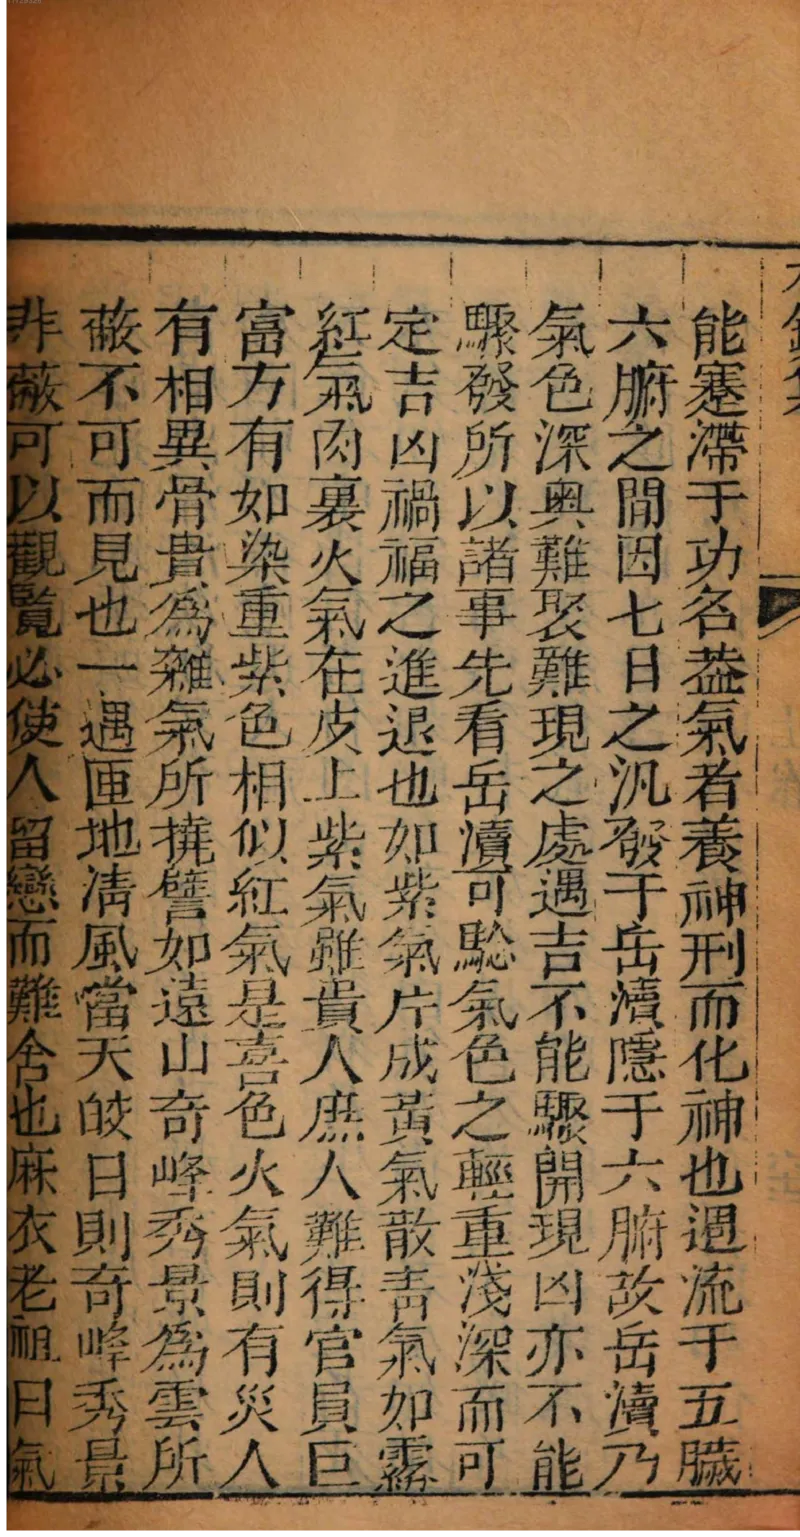 能蹇滯于功名葢氣者養神刑而化神也週流于五臟
六腑之間因七日之汎發于岳瀆隱于六腑故岳瀆乃
氣色深奥難聚難現之處遇吉不能驟開現凶亦不能
驟發所以諸事先看岳瀆可騐氣色之輕重淺深而可
定吉凶禍福之進退也如紫氣片成黃氣散靑氣如霧
紅氣肉裏火氣在皮上紫氣雖貴人庶人難得官員巨
富方有如染重紫色相似紅氣是喜色火氣則有災人
有相異骨貴為雜氣所撓譬如遠山奇峰秀景為雲所
蔽不可而見也一遇匝地凊風當天皎日則奇峰秀景
非蔽可以觀覧必使人留戀而難舍也麻衣老祖曰氣